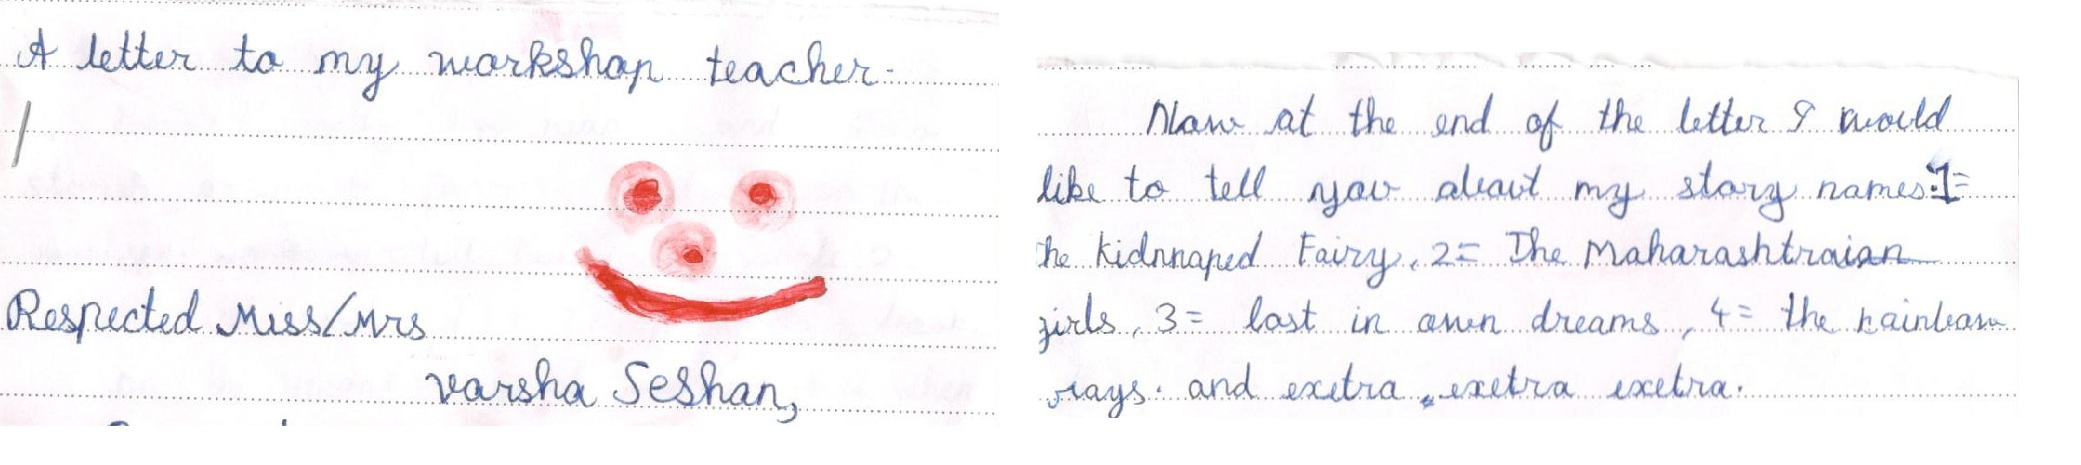 A letter to my workshop teacher.
Respected Miss/Mrs
Varsha Seshan,
Now at the end of the letter I would
like to tell you about my story names:1=
he kidnnaped Fairy, 2= The Maharashtraian
girls, 3= lost in own dreams, 4= the rainbow
rays. and exetra, exetra exetra.